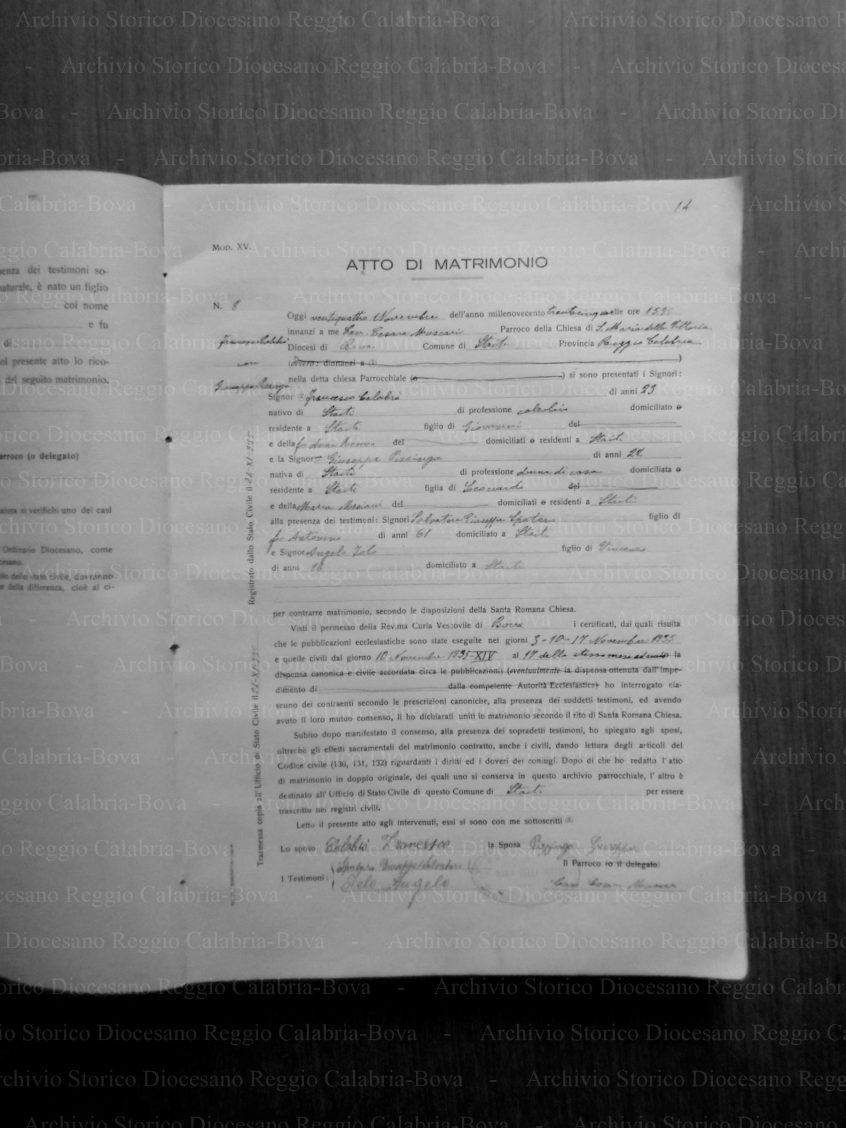 14
Mod. XV.
ATTO DI MATRIMONIO
N. 8
Francesco Calabrò
con
Giuseppa
Oggi ventiquattro Novembre dell'anno millenovecento trentacinque alle ore 15
innanzi a me Can. Cesare Parroco della Chiesa di S. Maria della Vittoria
Diocesi di Bova Comune di Staiti Provincia Reggio Calabria
(Invero: dinnanzi a (1) )
nella detta chiesa Parrocchiale (o ) si sono presentati i Signori:
Signor Francesco Calabrò di anni 23
nativo di Staiti di professione colono domiciliato o
residente a Staiti figlio di Giovanni del
e della del domiciliati o residenti a Staiti
e la Signor Giuseppa di anni 22
nativa di Staiti di professione donna di casa domiciliata o
residente a Staiti figlia di Leonardo del
e della Maria del domiciliati o residenti a Staiti
alla presenza dei testimoni: Signori Salvatore Giuseppe Spataro figlio di
fu Antonino di anni 61 domiciliato a Staiti
e Signor Angelo Zolo figlio di Vincenzo
di anni domiciliato a Staiti
per contrarre matrimonio, secondo le disposizioni della Santa Romana Chiesa.
Visti il permesso della Rev.ma Curia Vescovile di Bova i certificati, dai quali risulta
che le pubblicazioni ecclesiastiche sono state eseguite nei giorni 3-10-17 Novembre 1935
e quelle civili dal giorno 10 Novembre 1935-XIV al 17 dello stesso mese ed anno la
dispensa canonica e civile accordata circa le pubblicazioni (eventualmente la dispensa ottenuta dall'impe-
dimento di dalla competente Autorità Ecclesiastica) ho interrogato cia-
scuno dei contraenti secondo le prescrizioni canoniche, alla presenza dei suddetti testimoni, ed avendo
avuto il loro mutuo consenso, li ho dichiarati uniti in matrimonio secondo il rito di Santa Romana Chiesa.
Subito dopo manifestato il consenso, alla presenza dei sopradetti testimoni, ho spiegato agli sposi,
oltrechè gli effetti sacramentali del matrimonio contratto, anche i civili, dando lettura degli articoli del
Codice civile (130, 131, 132) riguardanti i diritti ed i doveri dei coniugi. Dopo di che ho redatto l'atto
di matrimonio in doppio originale, dei quali uno si conserva in questo archivio parrocchiale, l'altro è
destinato all'Ufficio di Stato Civile di questo Comune di Staiti per essere
trascritto nei registri civili.
Letto il presente atto agli intervenuti, essi si sono con me sottoscritti
Lo sposo Calabrò Francesco la Sposa Giuseppa
I Testimoni: Spataro Giuseppe Salvatore Il Parroco (o il delegato)
Angelo
Registrato dallo Stato Civile il
Trasmessa copia all'Ufficio di Stato Civile il
enza dei testimoni so-
naturale, è nato un figlio
col nome
e fu
di
el presente atto lo rico-
del seguito matrimonio.
arroco (o delegato)
si verifichi uno dei casi
Ordinario Diocesano, come
dello stato civile, dovranno
e della differenza, cioè al ci-
Archivio Storico Diocesano Reggio Calabria-Bova